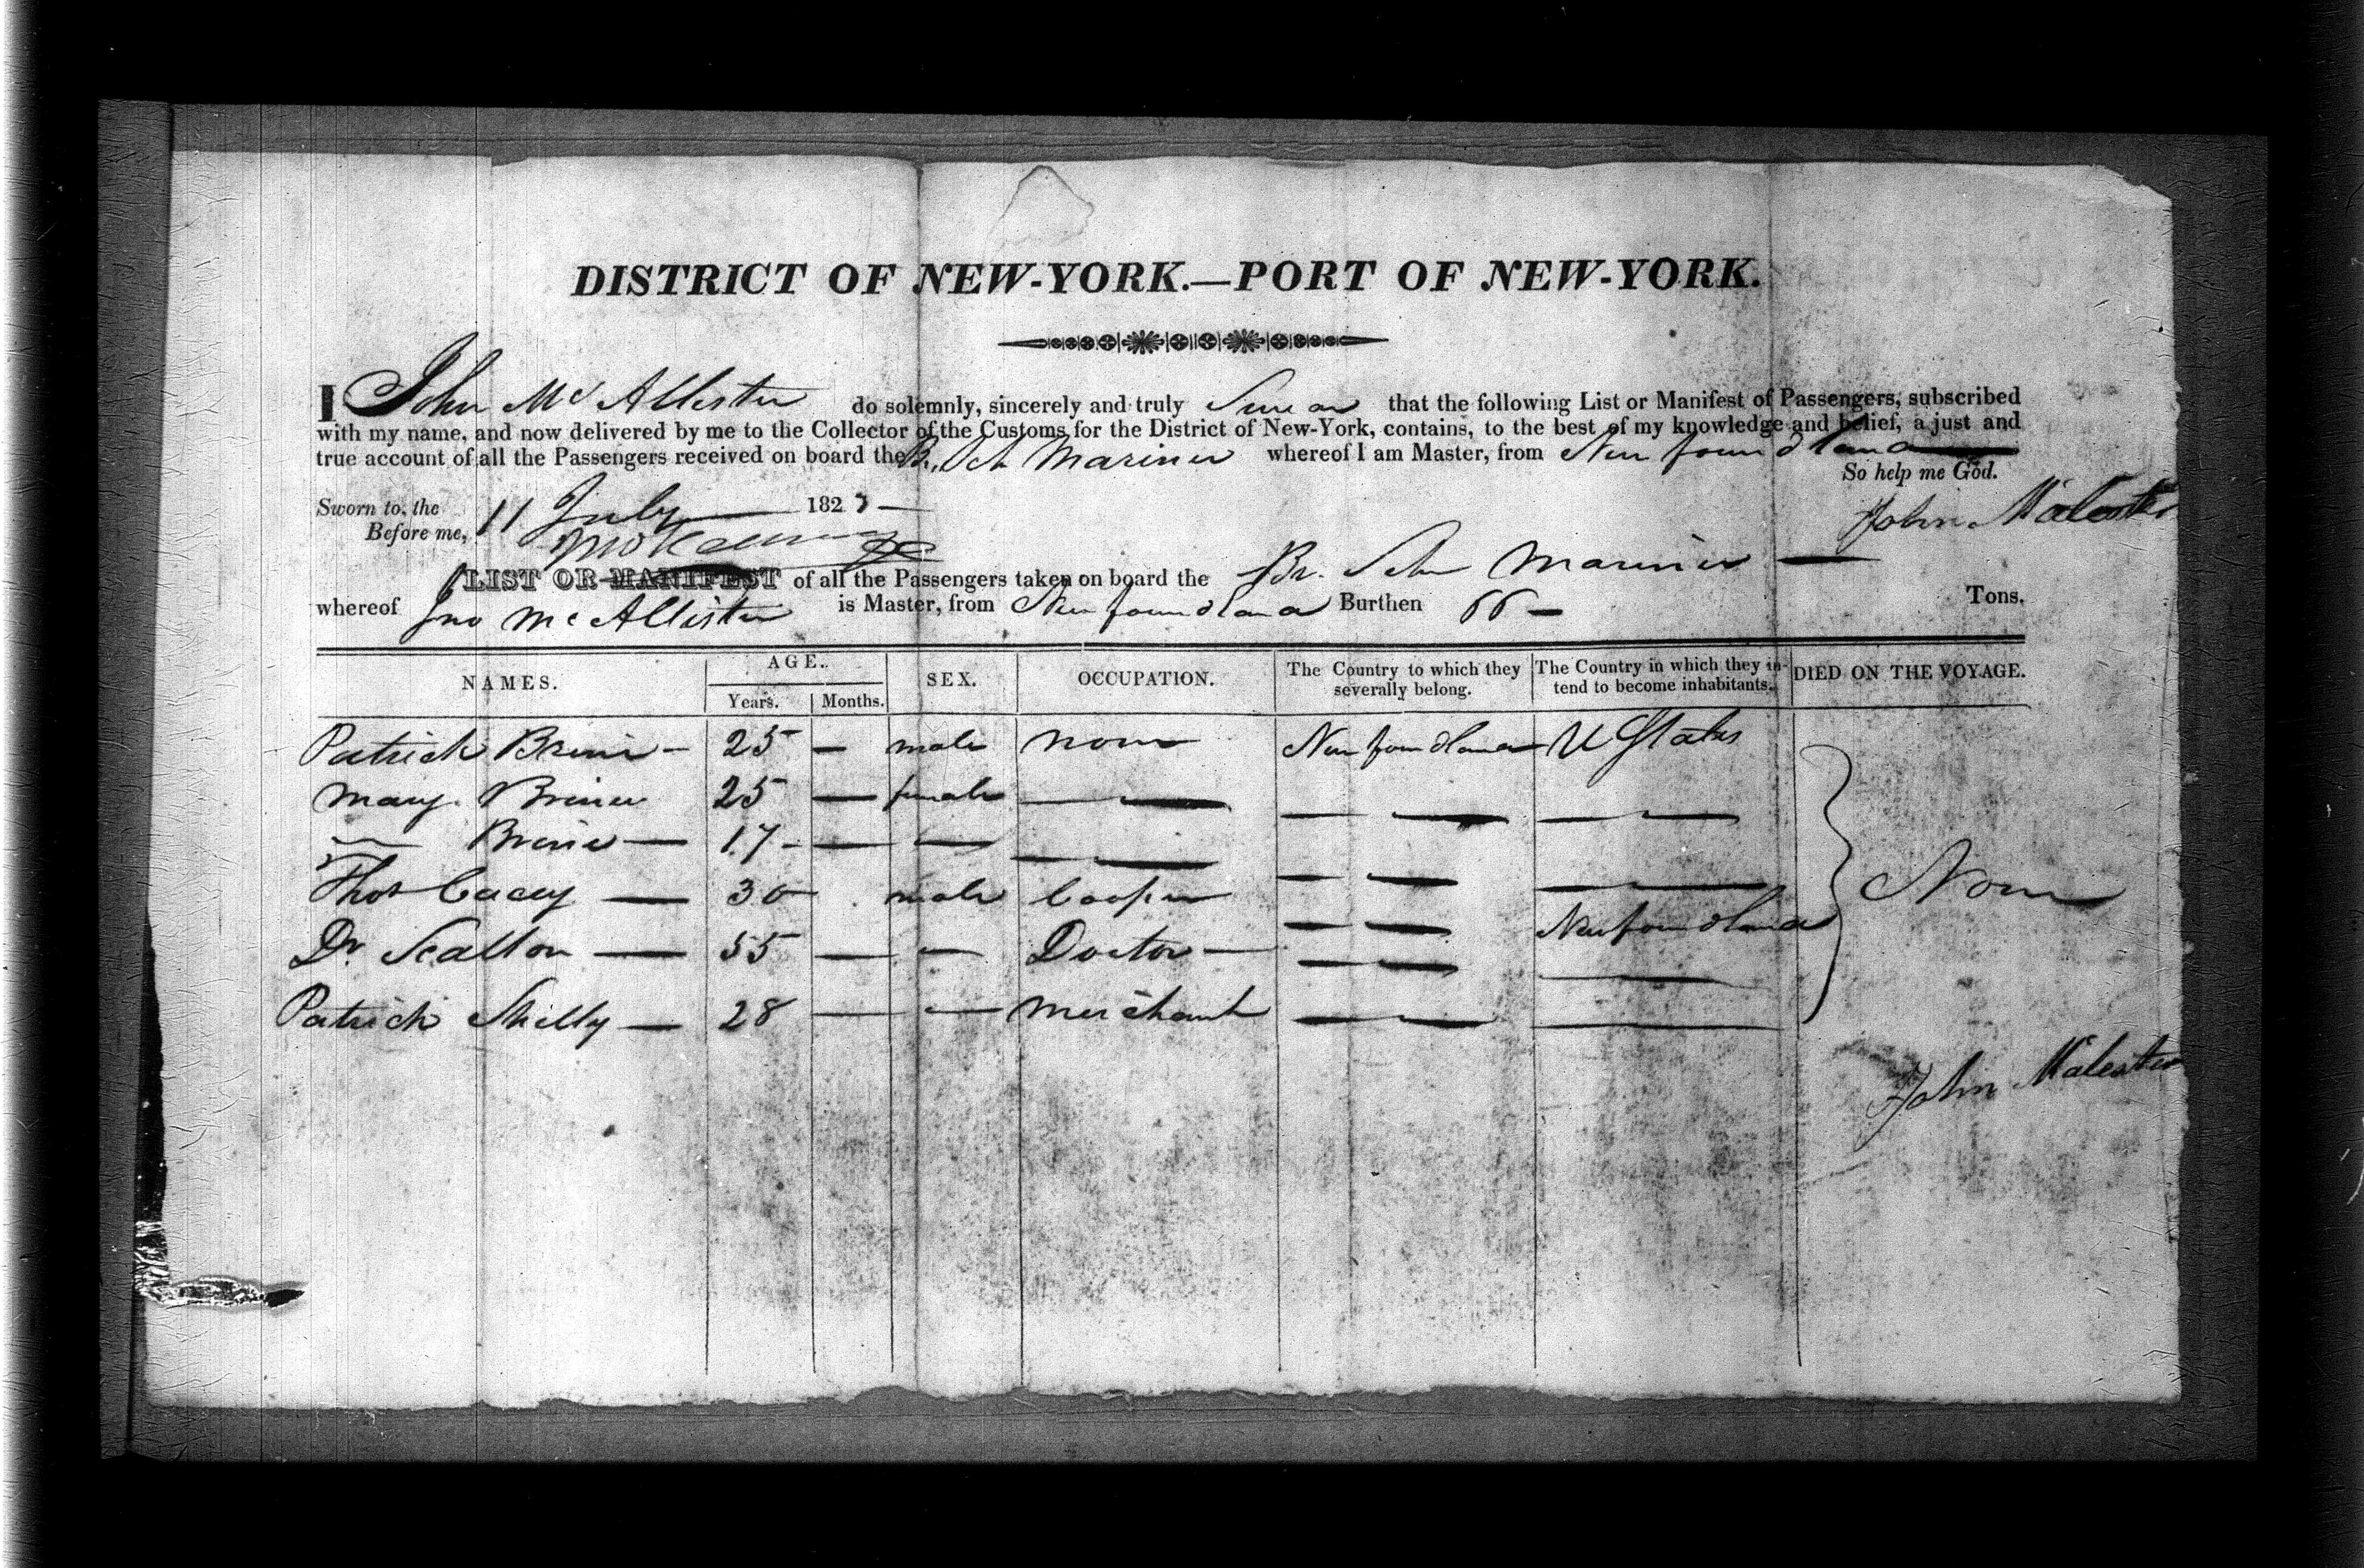 DISTRICT OF NEW-YORK.—PORT OF NEW-YORK.
I John McAllister do solemnly, sincerely and truly Swear that the following List or Manifest of Passengers, subscribed
with my name, and now delivered by me to the Collector of the Customs for the District of New-York, contains, to the best of my knowledge and belief, a just and
true account of all the Passengers received on board the Br. Sch Mariner whereof I am Master, from Newfoundland
So help me God.
Sworn to, the 11 July 182
Before me,
John
LIST OR MANIFEST of all the Passengers taken on board the Br. Schr Mariner
whereof Jno McAllister is Master, from Newfoundland Burthen 66 Tons.
NAMES. AGE. SEX. OCCUPATION. The Country to which they severally belong. The Country in which they intend to become inhabitants. DIED ON THE VOYAGE.
Years. Months.
Patrick 25 — male none Newfoundland U States
Mary 25 — female — —
— 17 — — — —
Thos 30 male Cooper — — Newfoundland
Dr. Scallon — 55 — — Doctor — — —
Patrick Skelly — 28 — — Merchant — — —
None
John